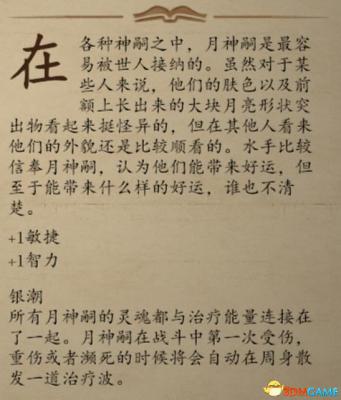 在各种神嗣之中，月神嗣是最容
易被世人接纳的。虽然对于某
些人来说，他们的肤色以及前
额上长出来的大块月亮形状突
出物看起来挺怪异的，但在其他人看来
他们的外貌还是比较顺看的。水手比较
信奉月神嗣，认为他们能带来好运，但
至于能带来什么样的好运，谁也不清
楚。
+1敏捷
+1智力
银潮
所有月神嗣的灵魂都与治疗能量连接在
了一起。月神嗣在战斗中第一次受伤，
重伤或者濒死的时候将会自动在周身散
发一道治疗波。
3DMGAME